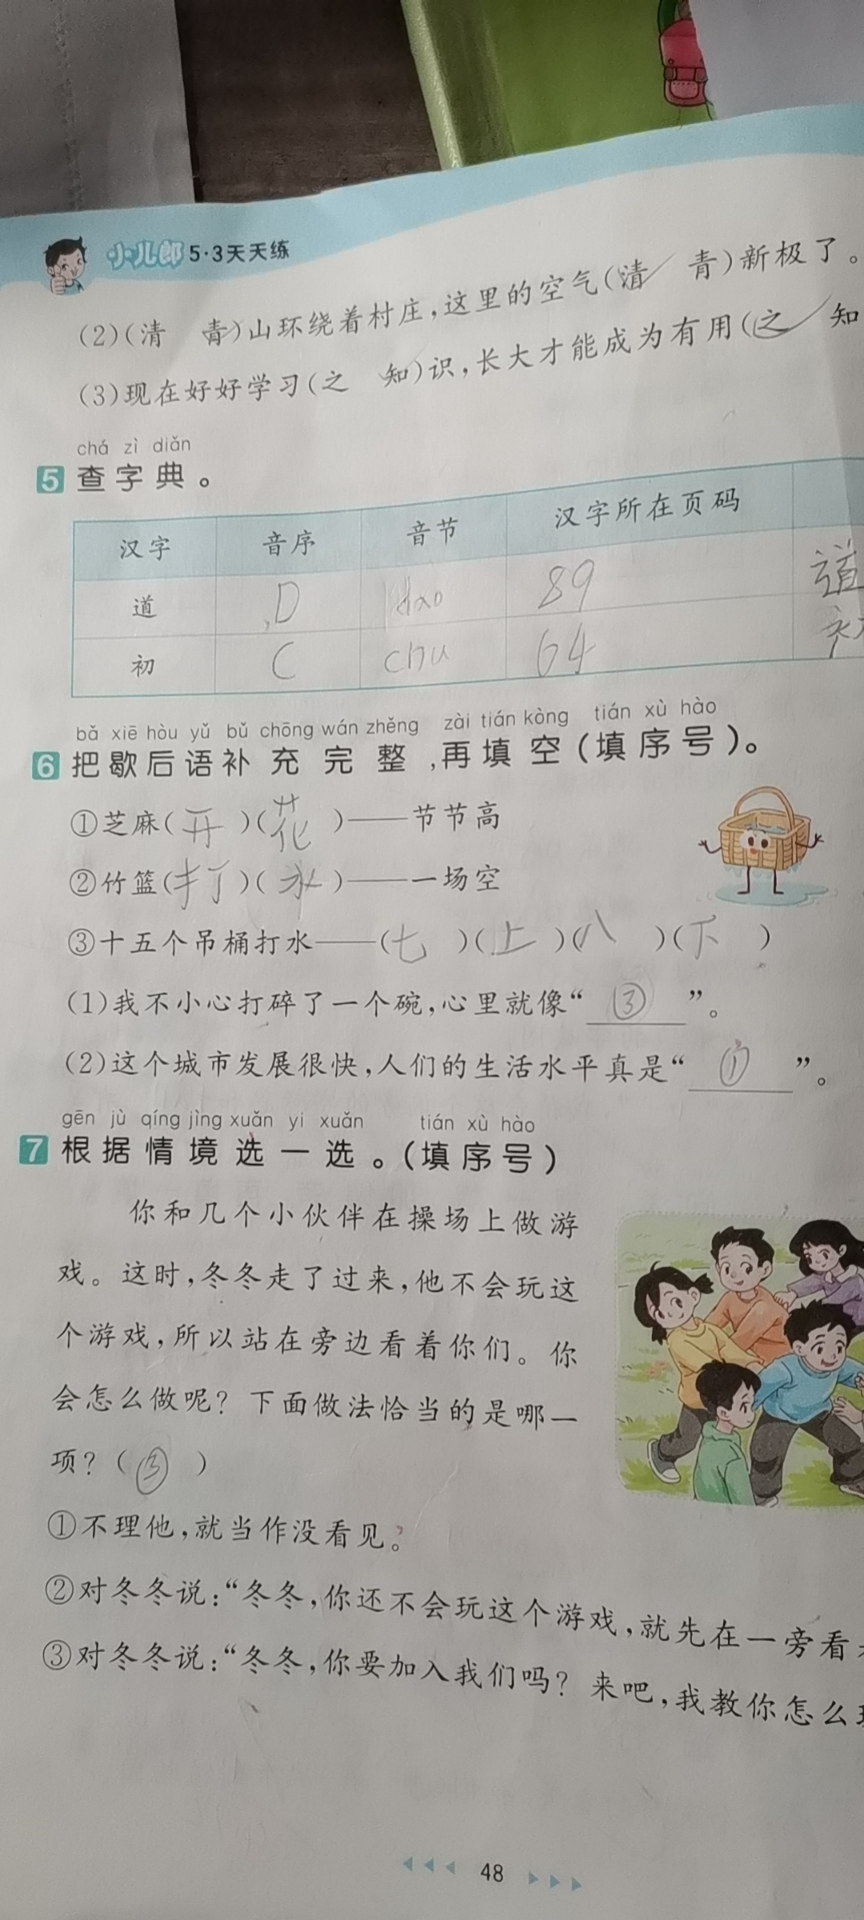 小儿郎 5·3天天练
(2)(清 青)山环绕着村庄,这里的空气(清 青)新极了。
(3)现在好好学习(之 知)识,长大才能成为有用(之 知
chá zì diǎn
5 查字典。
汉字 音序 音节 汉字所在页码
道 D dao 89 道
初 C chu 64
bǎ xiē hòu yǔ bǔ chōng wán zhěng zài tián kòng tián xù hào
6 把歇后语补充完整,再填空(填序号)。
①芝麻(开)(花)——节节高
②竹篮(打)(水)——一场空
③十五个吊桶打水——(七)(上)(八)(下)
(1)我不小心打碎了一个碗,心里就像“③”。
(2)这个城市发展很快,人们的生活水平真是“①”。
gēn jù qíng jìng xuǎn yi xuǎn tián xù hào
7 根据情境选一选。(填序号)
你和几个小伙伴在操场上做游
戏。这时,冬冬走了过来,他不会玩这
个游戏,所以站在旁边看着你们。你
会怎么做呢?下面做法恰当的是哪一
项?(③)
①不理他,就当作没看见。
②对冬冬说:“冬冬,你还不会玩这个游戏,就先在一旁看
③对冬冬说:“冬冬,你要加入我们吗?来吧,我教你怎么
48